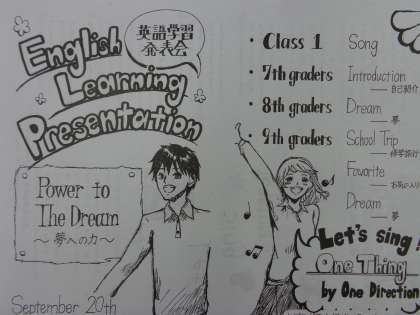 English
Learning
Presentation
英語学習
発表会
Power to
The Dream
～夢への力～
September 20th
・Class 1
・7th graders
・8th graders
・9th graders
Song
Introduction
自己紹介
Dream
夢
School Trip
修学旅行
Favorite
お気に入り
Dream
夢
Let's sing!
One Thing
by One Direction